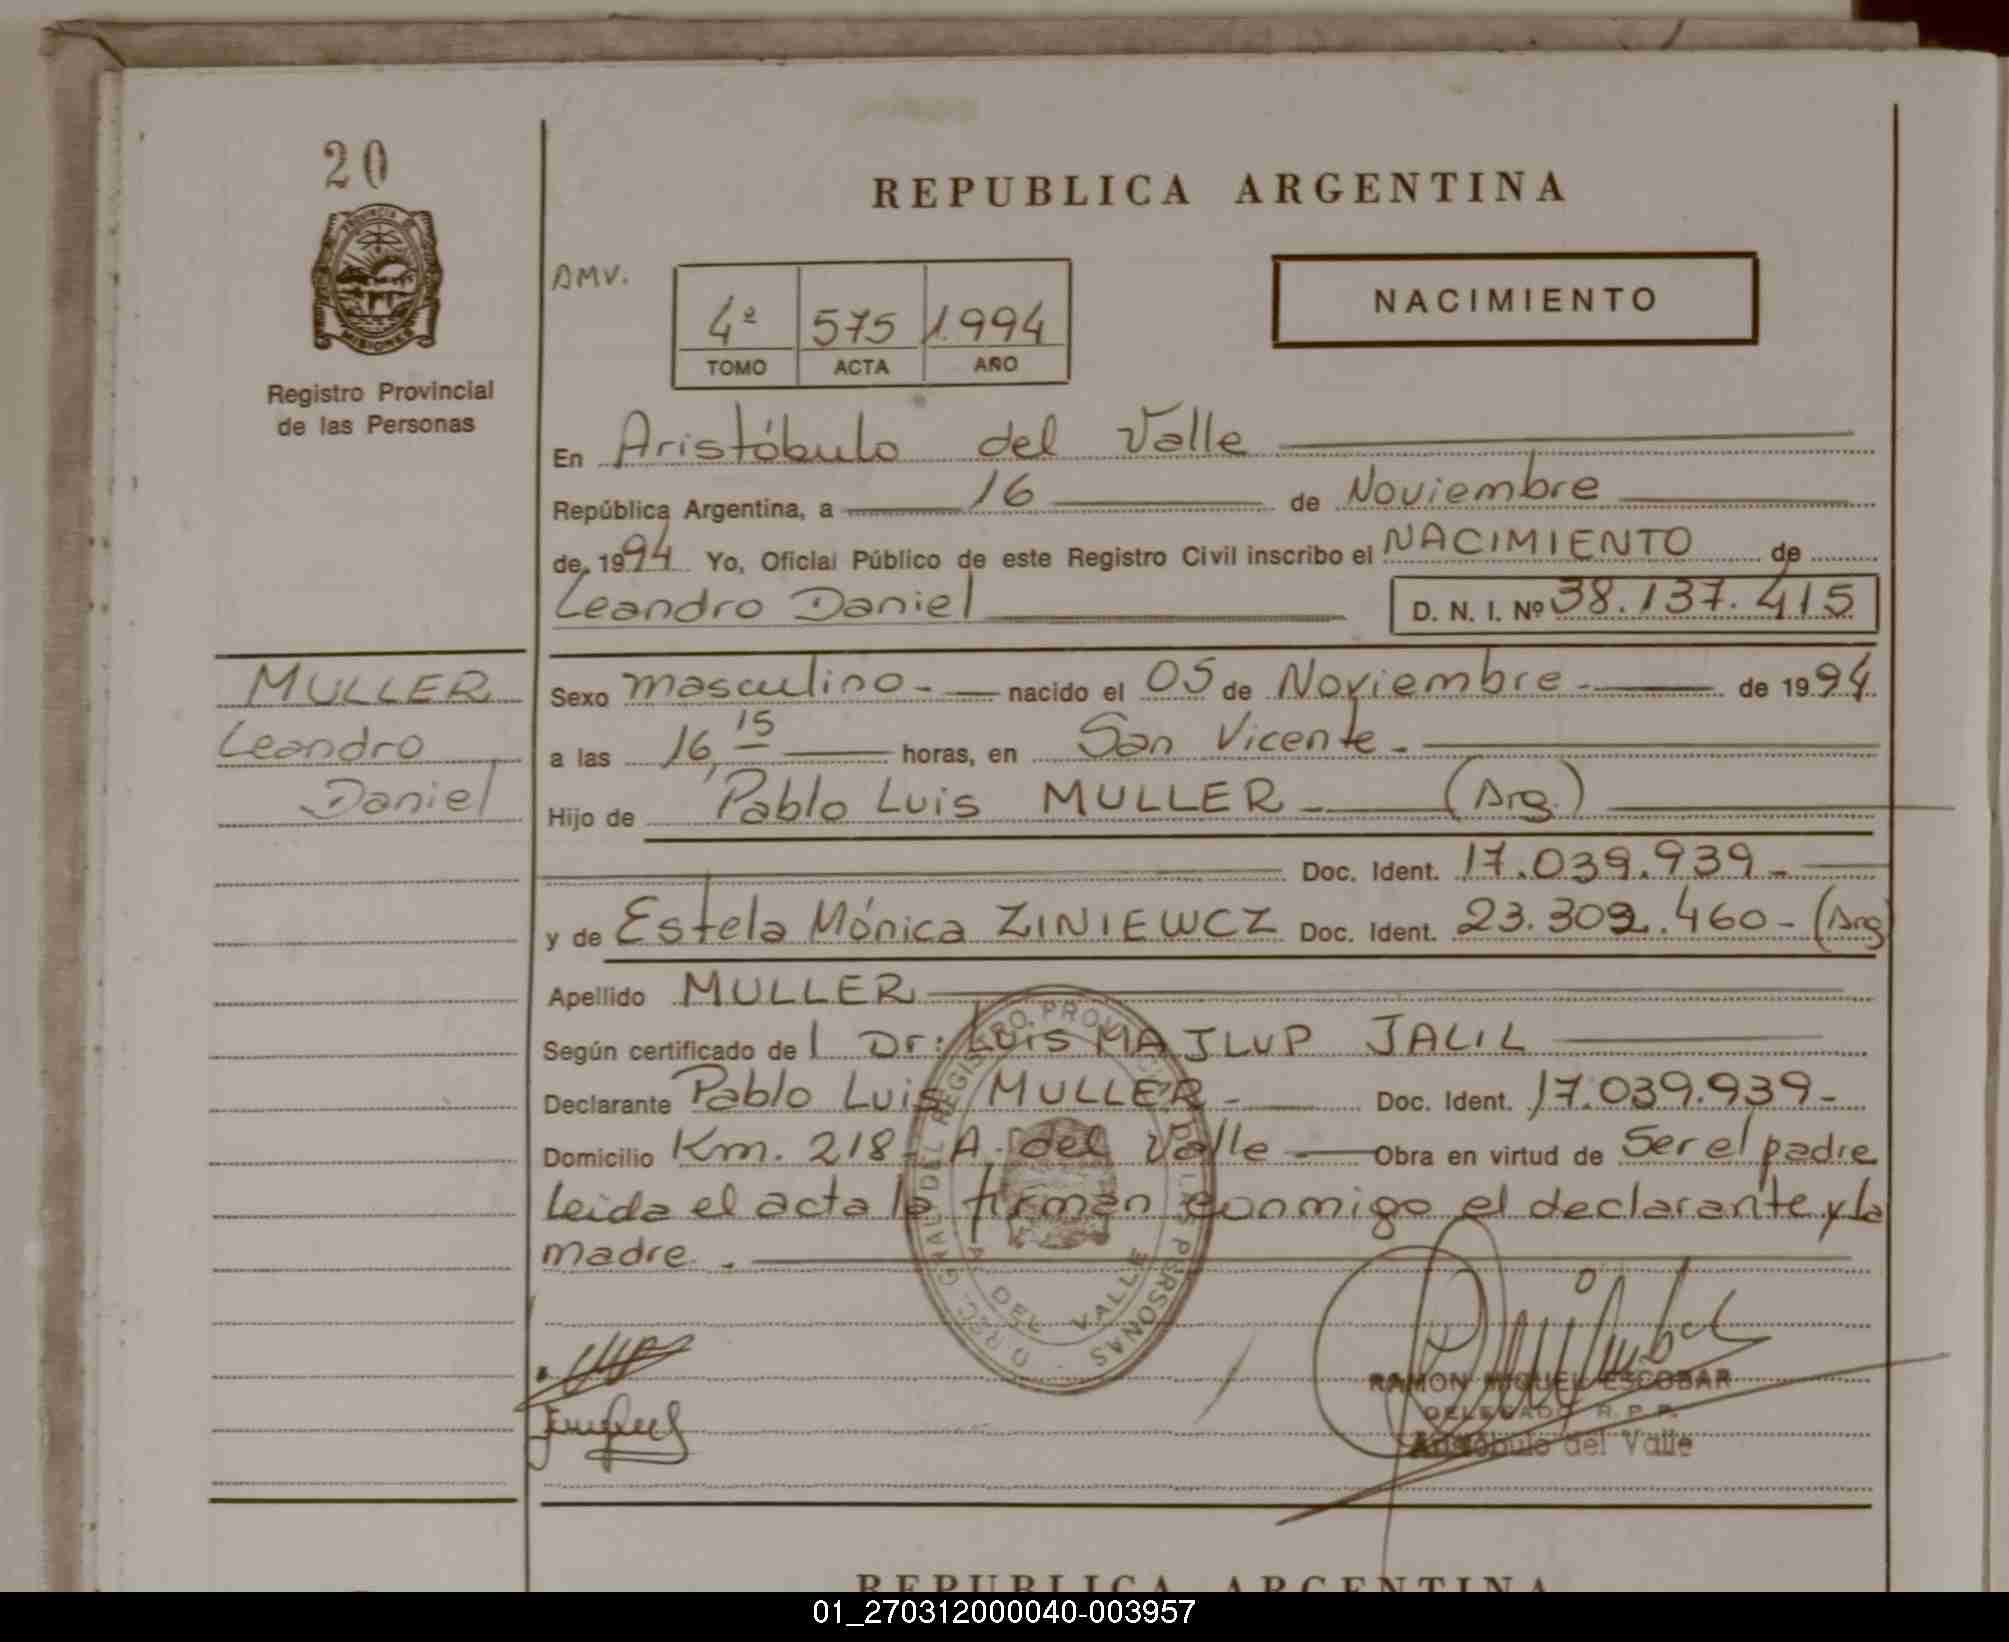 20
PROVINCIA DE
MISIONES
Registro Provincial
de las Personas
REPUBLICA ARGENTINA
AMV.
4º 575 1.994
TOMO ACTA AÑO
NACIMIENTO
En Aristóbulo del Valle
República Argentina, a 16 de Noviembre
de 1994 Yo, Oficial Público de este Registro Civil inscribo el NACIMIENTO de
Leandro Daniel D. N. I. Nº 38.137.415
MULLER
Leandro
Daniel
Sexo masculino - nacido el 05 de Noviembre - de 1994
a las 16,15 horas, en San Vicente -
Hijo de Pablo Luis MULLER - (Arg.)
Doc. Ident. 17.039.939 -
y de Estela Mónica ZINIEWCZ Doc. Ident. 23.309.460 - (Arg)
Apellido MULLER
Según certificado del Dr: Luis MAJLUP JALIL
Declarante Pablo Luis MULLER - Doc. Ident. 17.039.939 -
Domicilio Km. 218 - A. del Valle Obra en virtud de Ser el padre
Leida el acta la firman conmigo el declarante y la
madre. -
D. REC. GRAL. DEL REGISTRO PROVINCIAL DE LAS PERSONAS
A. DEL VALLE
RAMON MIGUEL ESCOBAR
DELEGADO R. P. P.
Aristóbulo del Valle
REPUBLICA ARGENTINA
01_270312000040-003957